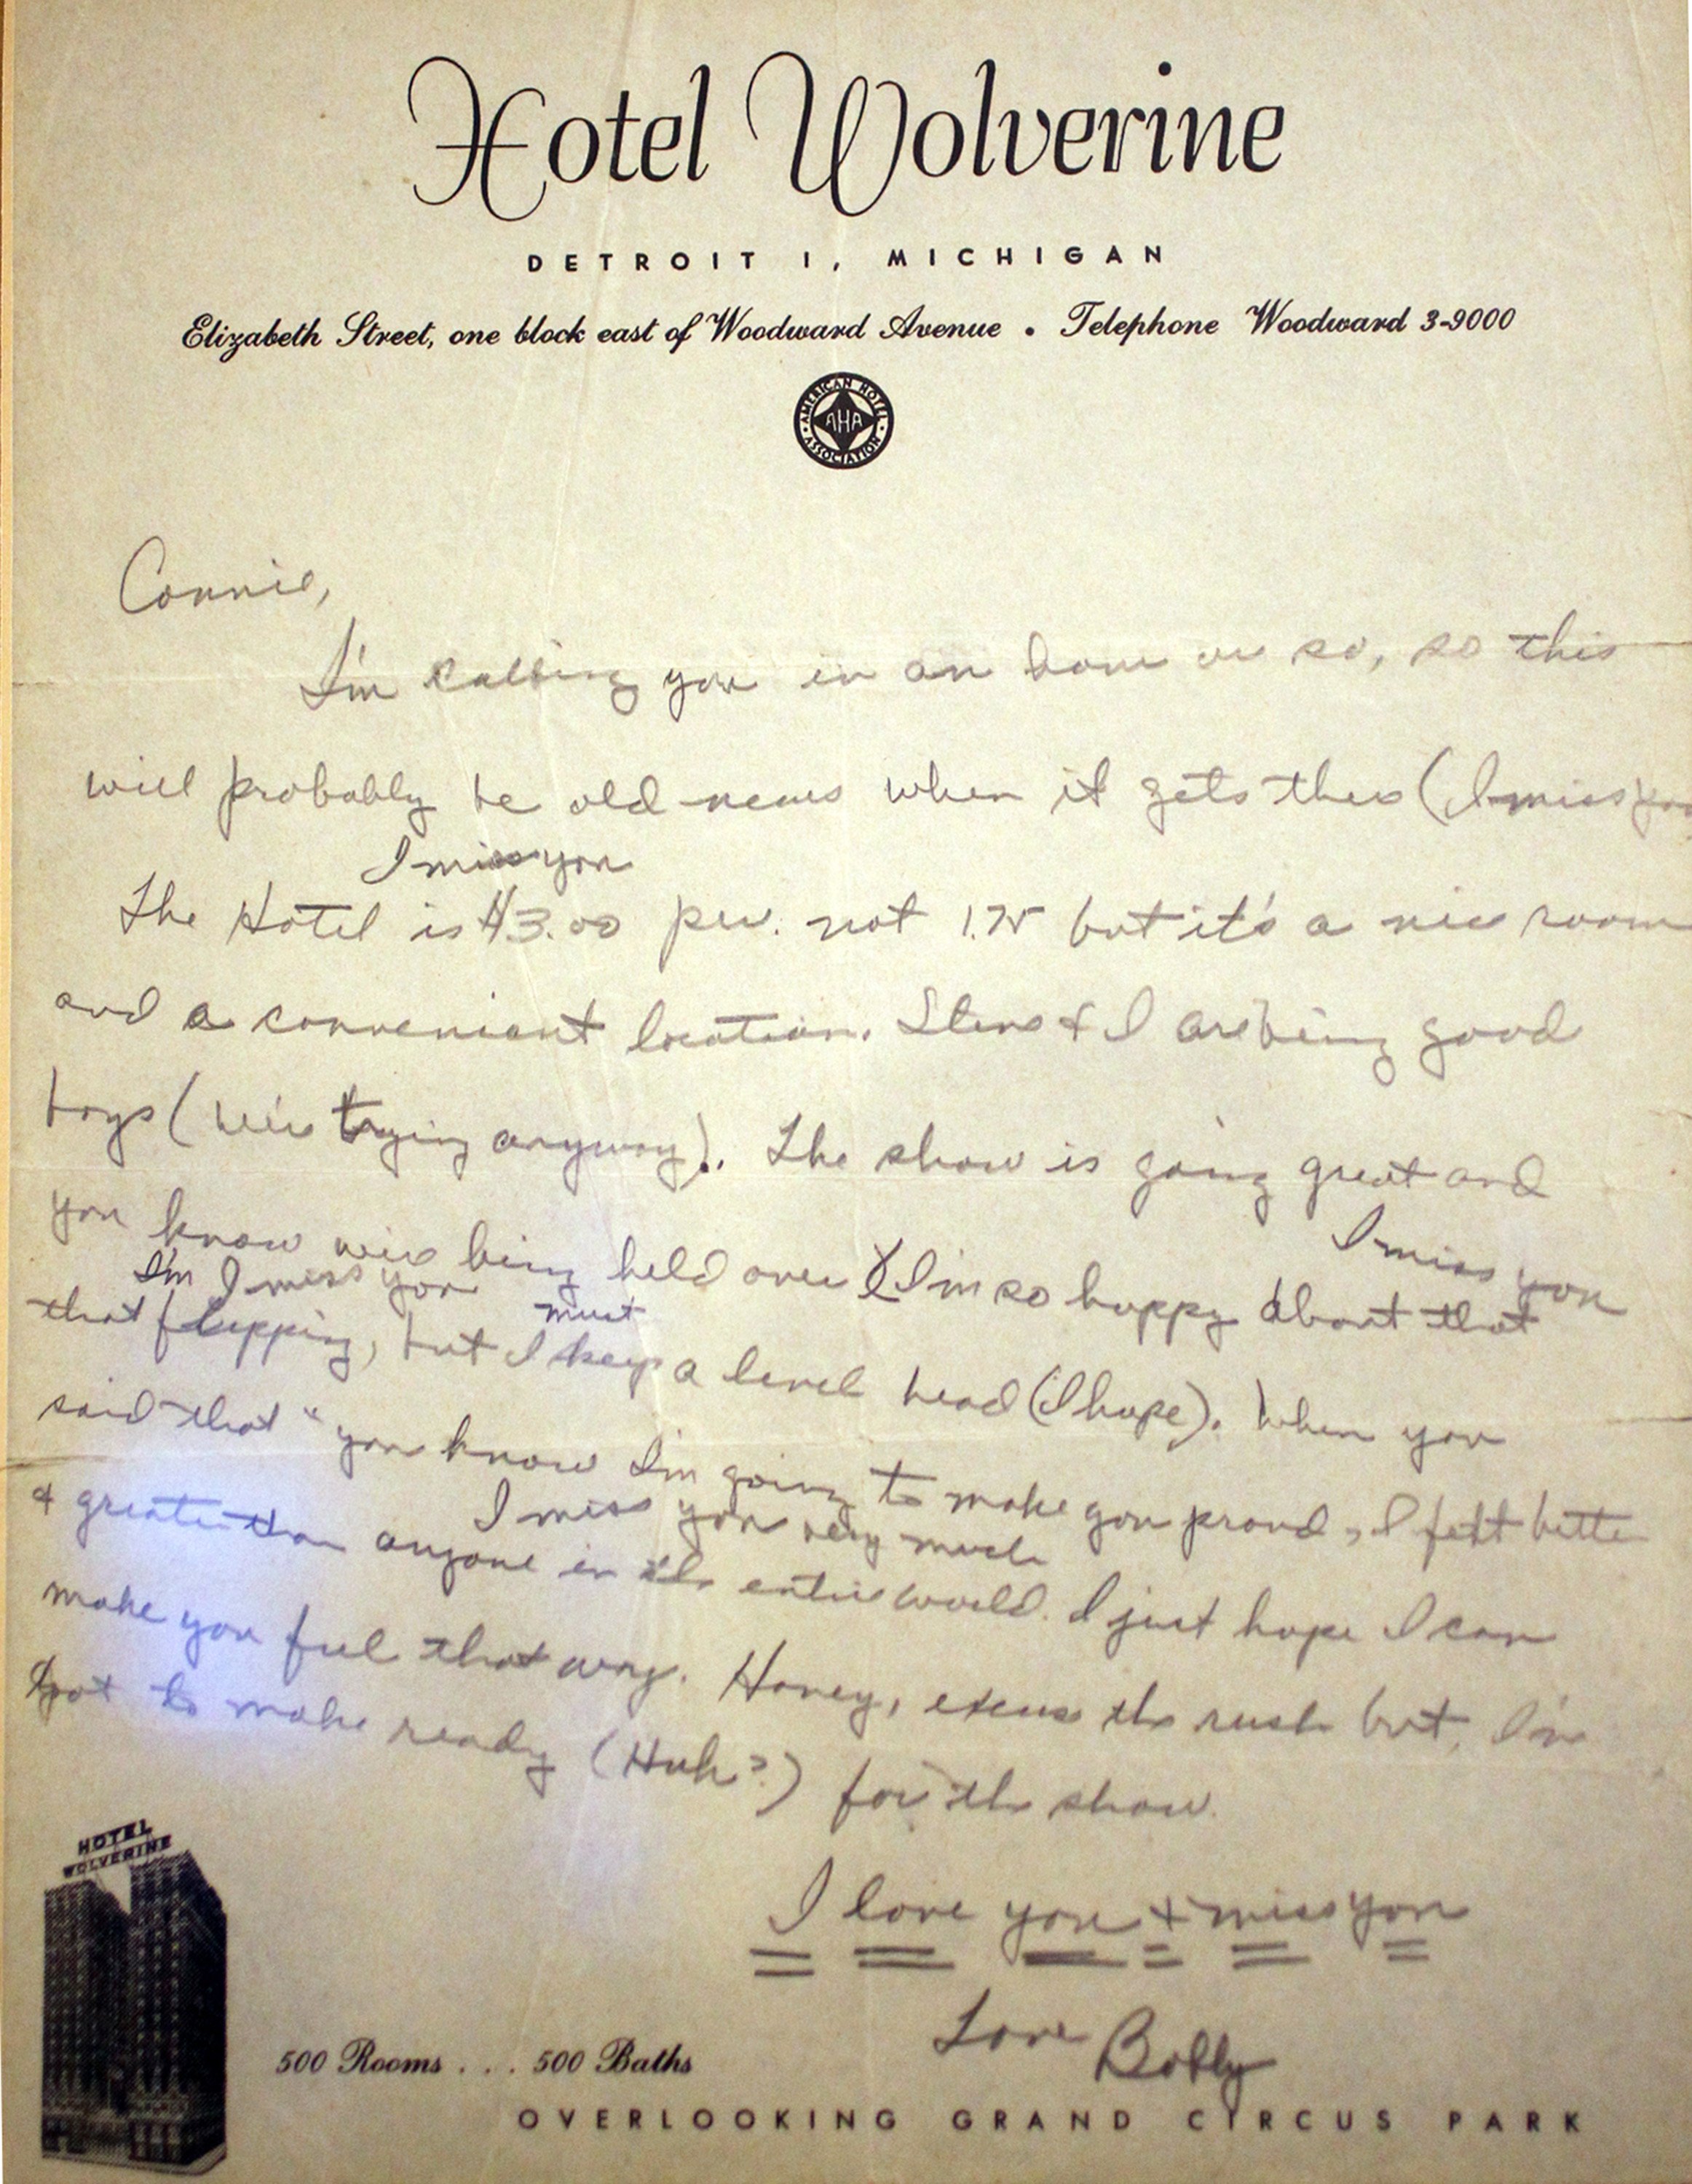 Hotel Wolverine
DETROIT 1, MICHIGAN
Elizabeth Street, one block east of Woodward Avenue • Telephone Woodward 3-9000
AMERICAN HOTEL ASSOCIATION
AHA
Connie,
I'm calling you in an hour or so, so this
will probably be old news when it gets there (I miss you
I miss you
The Hotel is $3.00 per. not 1.75 but it's a nice room
and a convenient location. Steve & I are being good
boys (we're trying anyway). The show is going great and
I miss you
you know we're being held over I'm so happy about that
I'm I miss you
must
that flipping, but I keep a level head (I hope). When you
said that "you know I'm going to make you proud, I felt better
I miss you very much
& greater than anyone in the entire world. I just hope I can
make you feel that way. Honey, excuse the rush but, I've
got to make ready (Huh?) for the show.
I love you + miss you
Love Bobby
HOTEL
WOLVERINE
500 Rooms . . . 500 Baths
OVERLOOKING GRAND CIRCUS PARK